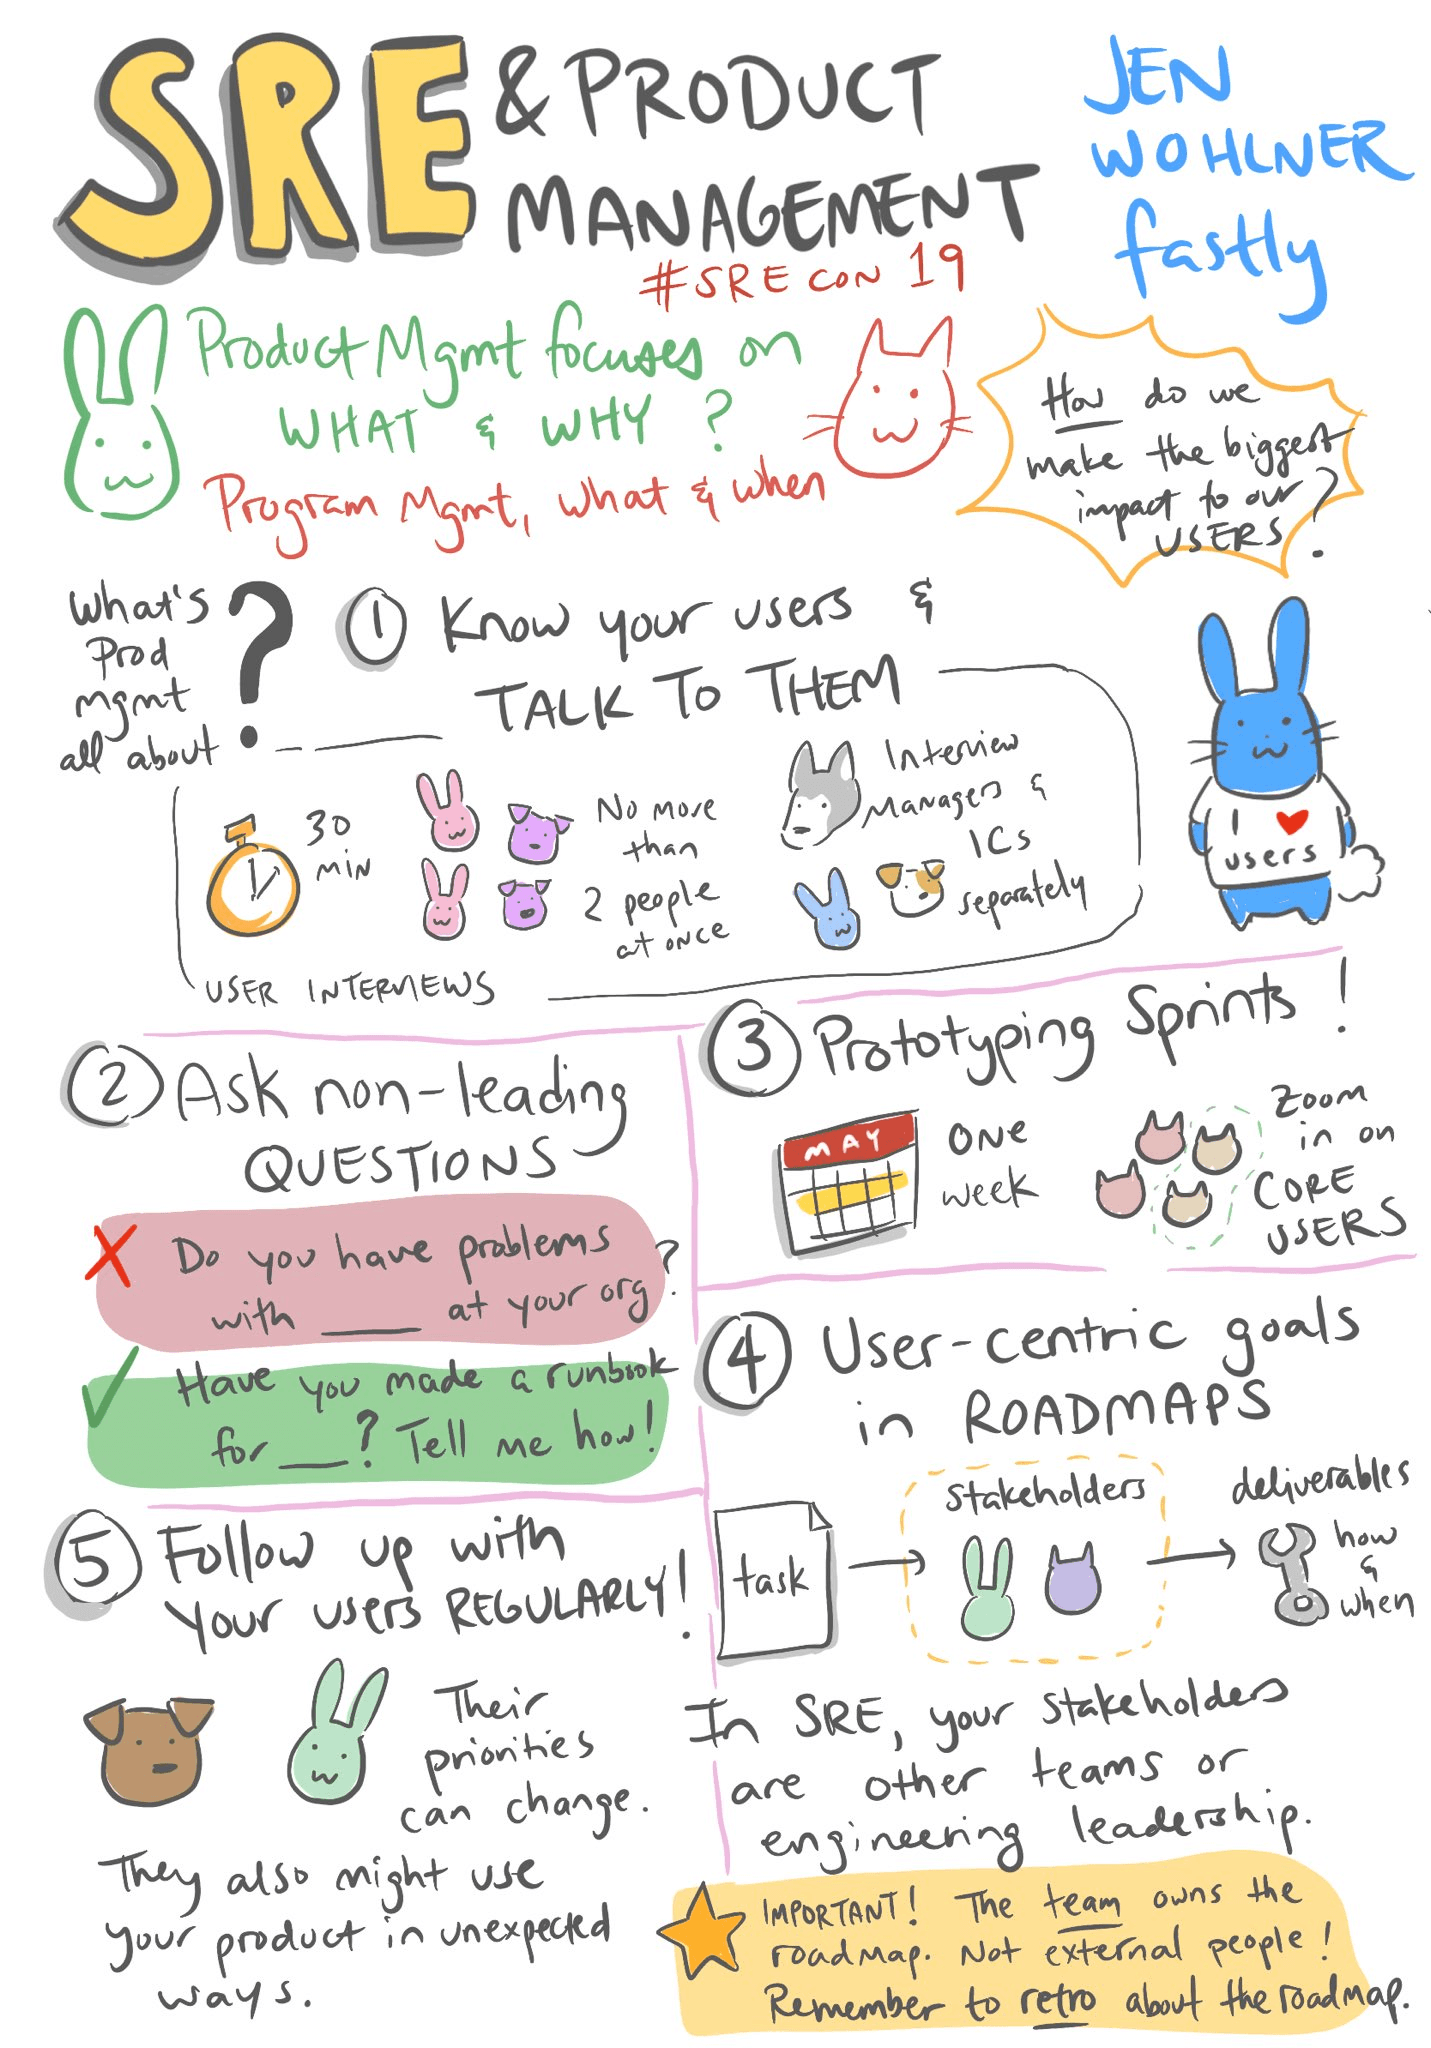 SRE & PRODUCT
MANAGEMENT
#SRECON 19
JEN
WOHLNER
fastly
Product Mgmt focuses on
WHAT & WHY?
Program Mgmt, what & when
How do we
make the biggest
impact to our
USERS?
What's
Prod
mgmt
all about
?
1 Know your users &
TALK TO THEM
30
MIN
No more
than
2 people
at once
Interview
Managers &
ICs
separately
USER INTERVIEWS
I ♥
users
2 Ask non-leading
QUESTIONS
X Do you have problems
with ____ at your org?
✓ Have you made a runbook
for ___? Tell me how!
3 Prototyping Sprints!
MAY
ONE
week
Zoom
in on
CORE
USERS
4 User-centric goals
in ROADMAPS
task
Stakeholders
deliverables
how
&
when
In SRE, your stakeholders
are other teams or
engineering leadership.
IMPORTANT! The team owns the
roadmap. Not external people!
Remember to retro about the roadmap.
5 Follow up with
your users REGULARLY!
Their
priorities
can change.
They also might use
your product in unexpected
ways.